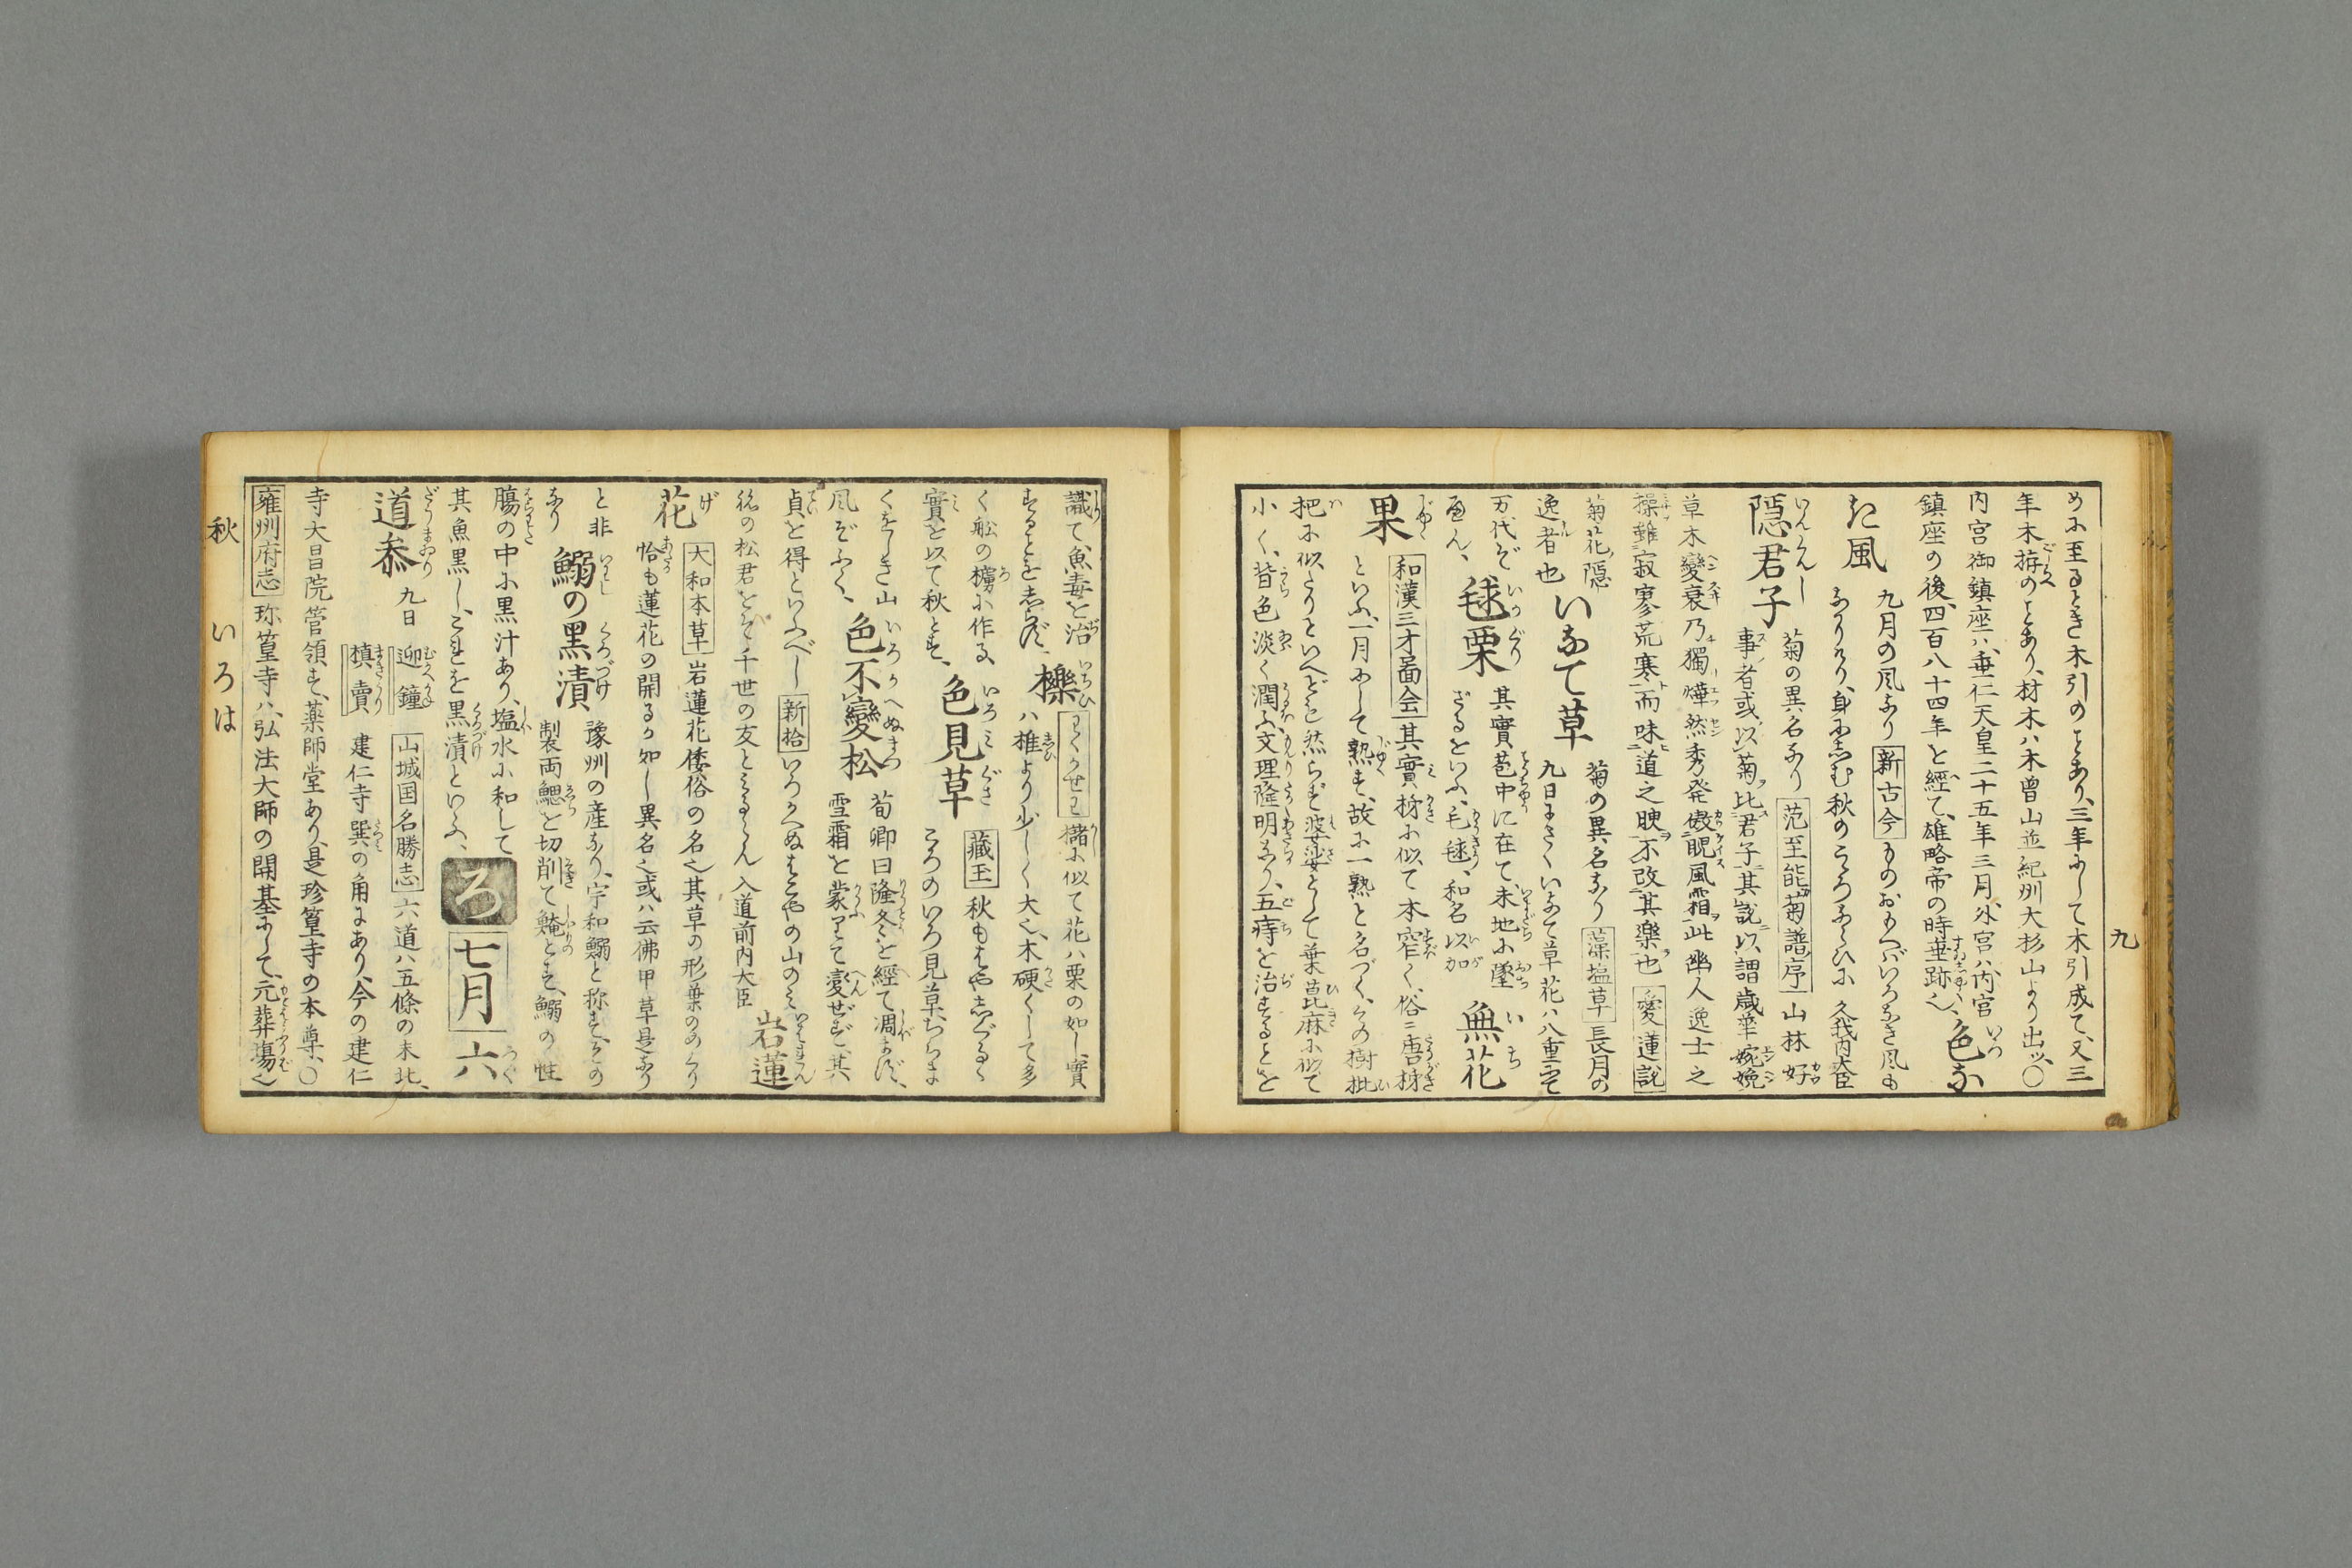 九
めに至るとき木引のことあり、三年にして木引成て、又三
年木搒のことあり、材木ハ木曾山並紀州大杉山より出ッ、〇
内宮御鎮座ハ、垂仁天皇二十五年三月、外宮ハ内宮
鎮座の後、四百八十四年を經て、雄略帝の時垂跡也、色な
き風 九月の風なり 新古今 ものおもへばいろなき風も
なかりけり、身にしむ秋のこころならひに 久我内大臣
隠君子 菊の異名なり 范至能菊譜序 山林好
事者或以菊比君子其説以謂歳華婉娩
草木變衰乃獨燁然秀発傲睨風霜此幽人逸士之
操雖寂寥荒寒而味道之腴不改其樂也 愛蓮説
菊花隠
逸者也 いなて草 菊の異名なり 藻塩草 長月の
九日まさくいなて草花ハ八重にて
万代ぞ
毬栗 其實苞中に在て、未地に墜
ざるをいふ、毛毬、和名以加 無花
果 和漢三才啚会 其實柹に似て本窄く、俗ニ唐柹
といふ、一月にして熟す、故に一熟と名づく、その樹枇
杷に似たりといへども然らず婆娑として葉萆麻に似て
小く、皆色淡く潤ふ、文理隆明なり、五痔を治することを
識て、魚毒を治
することをしらず、 櫟 わくかせわ 櫧に似て花ハ栗の如し、實
ハ椎より少しく大也、木硬くして多
く舩の櫓に作る、
實を以て秋とす、 色見草 藏玉 秋もはや志ぐるゝ
ころのいろ見草、ちらま
くをしき山
風ぞふく、 色不變松 荀卿曰隆冬を經て凋まず、
雪霜を蒙りて變ぜず、其
貞を得といふべし 新拾 いろかへぬはこやの山のミ
祢の松君をぞ千世の友とミるらん 入道前内大臣 岩蓮
花 大和本草 岩蓮花倭俗の名也其草の形葉ののくり
恰も蓮花の開るか如し異名也或ハ云佛甲草是なり
と非
なり 鰯の黒漬 豫州の産なり、宇和鰯と称す、その
製両鰓を切削て醃とす、鰯の性
膓の中に黒汁あり、塩水に和して
其魚黒し、これを黒漬といふ、 ろ 七月 六
道参 九日 迎鐘 槙賣 山城国名勝志 六道ハ五條の末北、
建仁寺巽の角にあり、今の建仁
寺大昌院管領す、薬師堂あり、是珍篁寺の本尊、〇
雍州府志 珎篁寺ハ、弘法大師の開基にして、元葬場也
秋 いろは